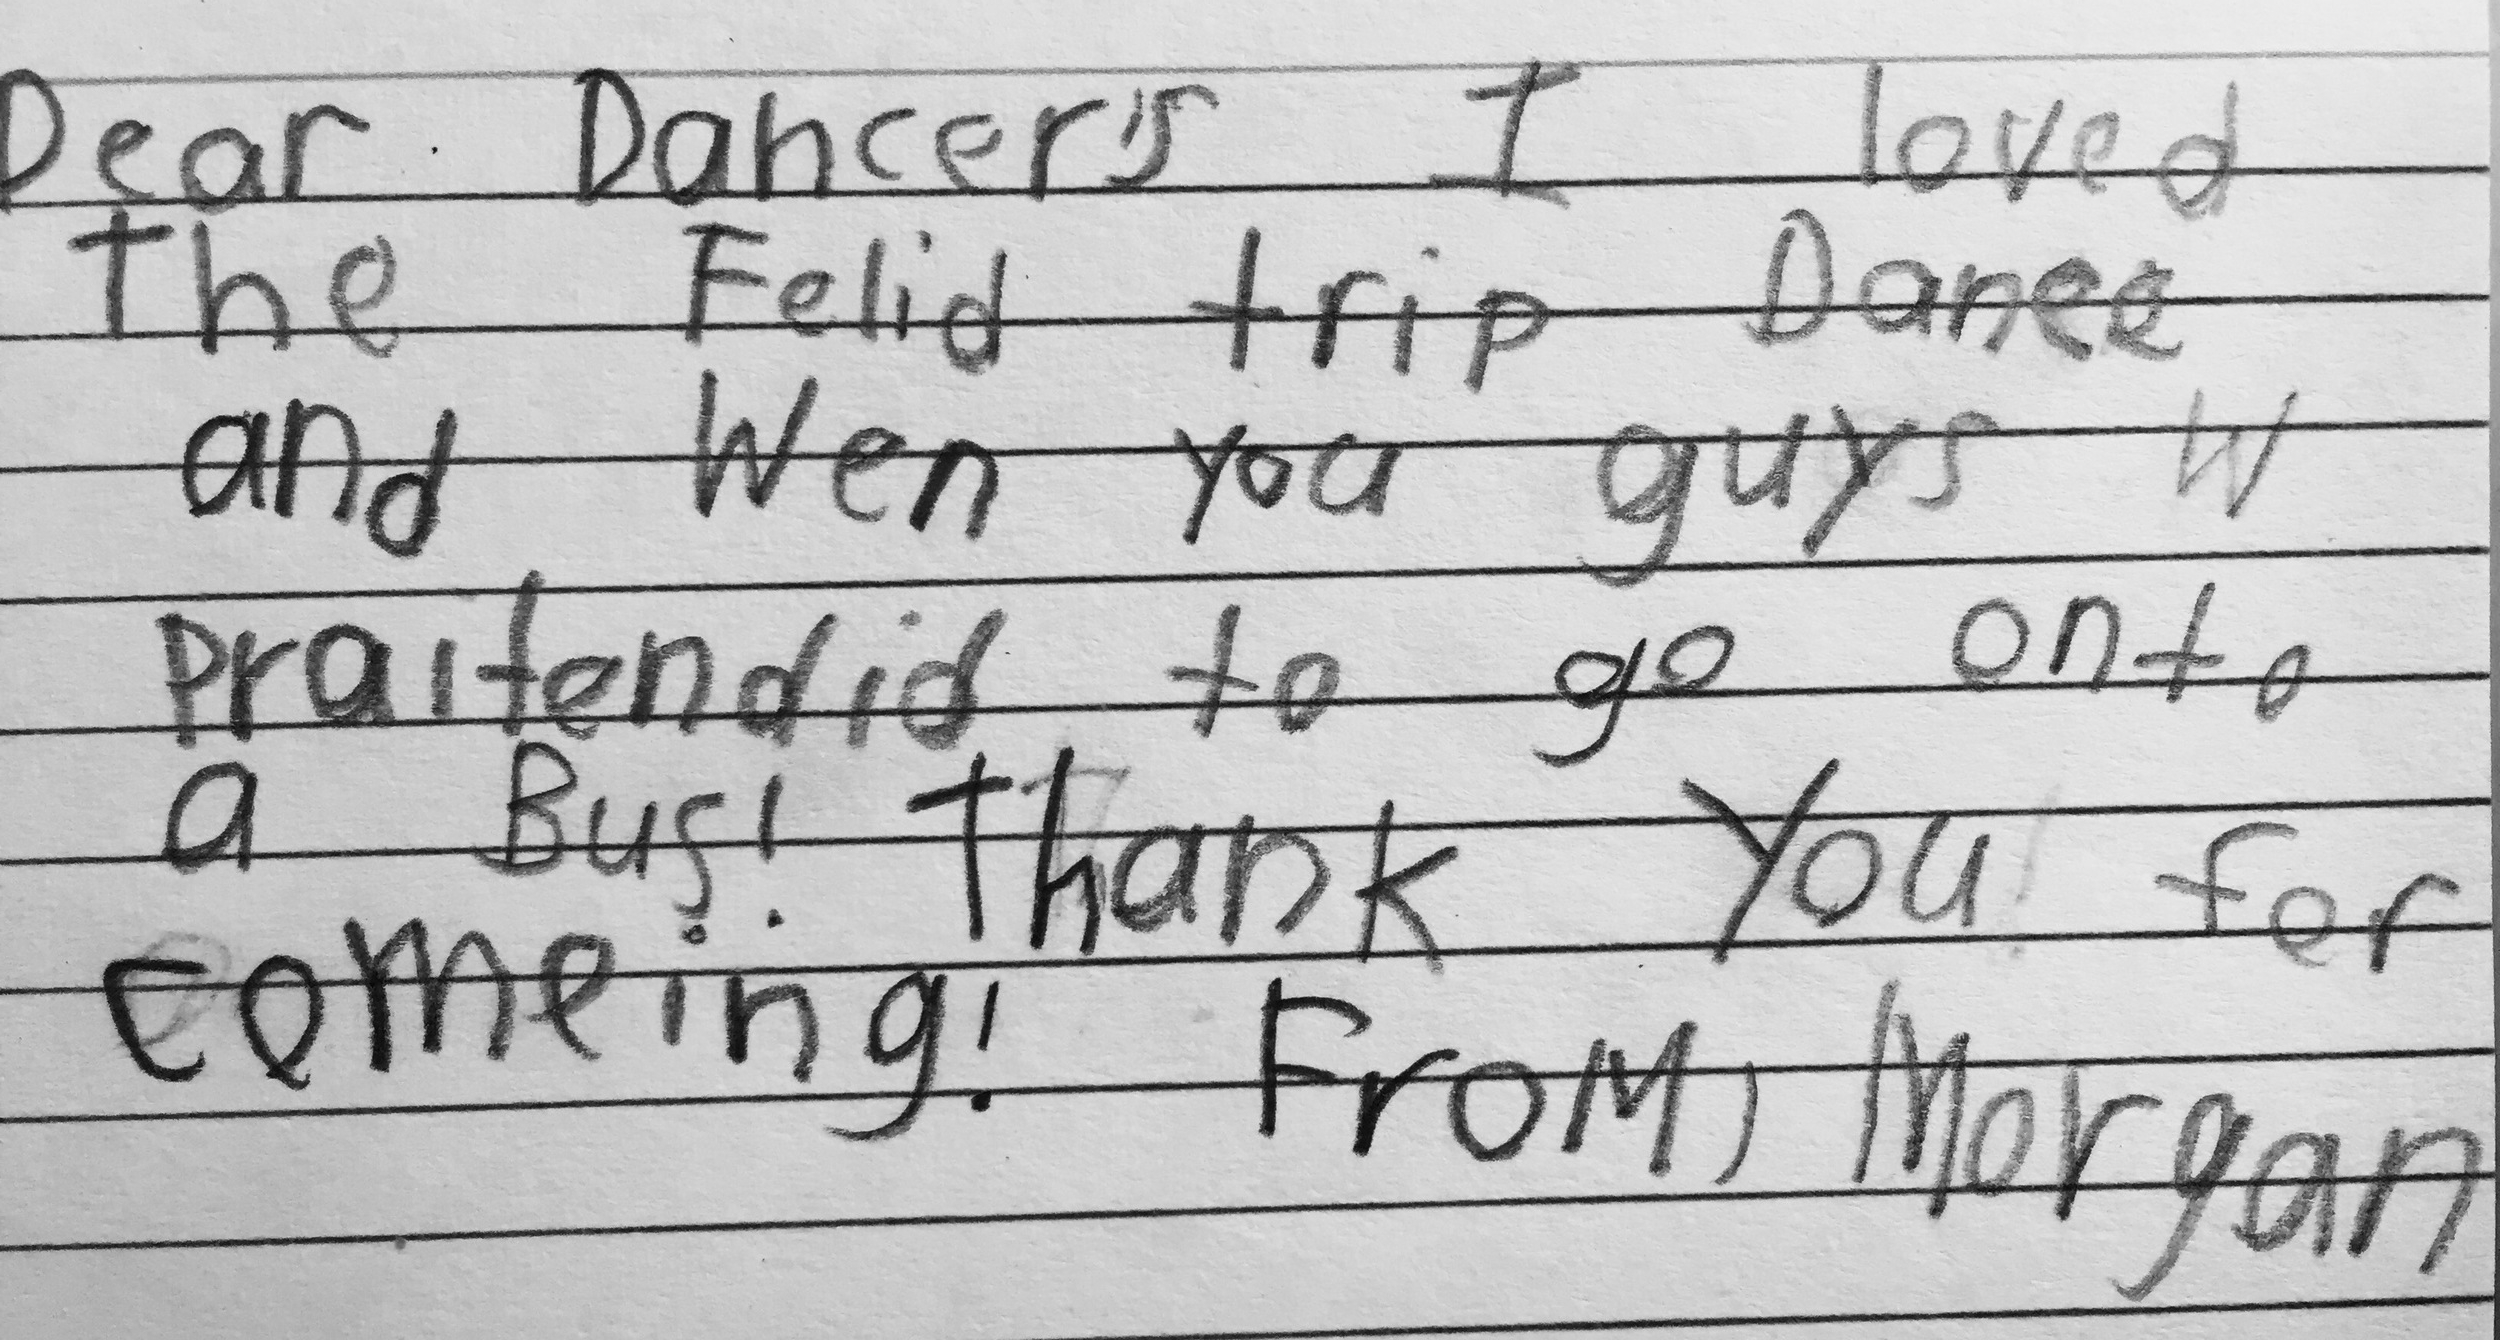 Dear Dancer's I loved
The Felid trip Dance
and Wen you guys W
praitendid to go onto
a Bus! Thank You! fer
comeing! From, Morgan